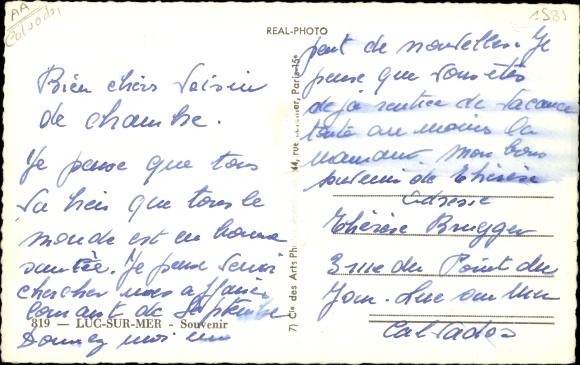 AA
Calvados
1585
REAL-PHOTO
Bien chers Voisin
de chambre.
Je pense que tous
va bien que tous le
monde est en bonne
santée. Je pense venir
chercher mes affaires
courant de Septembre
819 — LUC-SUR-MER - Souvenir
Donnez moi un
7) Cie des Arts Ph 44, rue Paris-15e
peut de nouvelles. Je
pense que vous êtes
déjà rentrée de vacance
toute au moins la
maman. Mon bons
souvenir de Thérèse
Adresse
Thérèse Brugger
3 rue du Point du
Jour. Luc sur Mer
Calvados